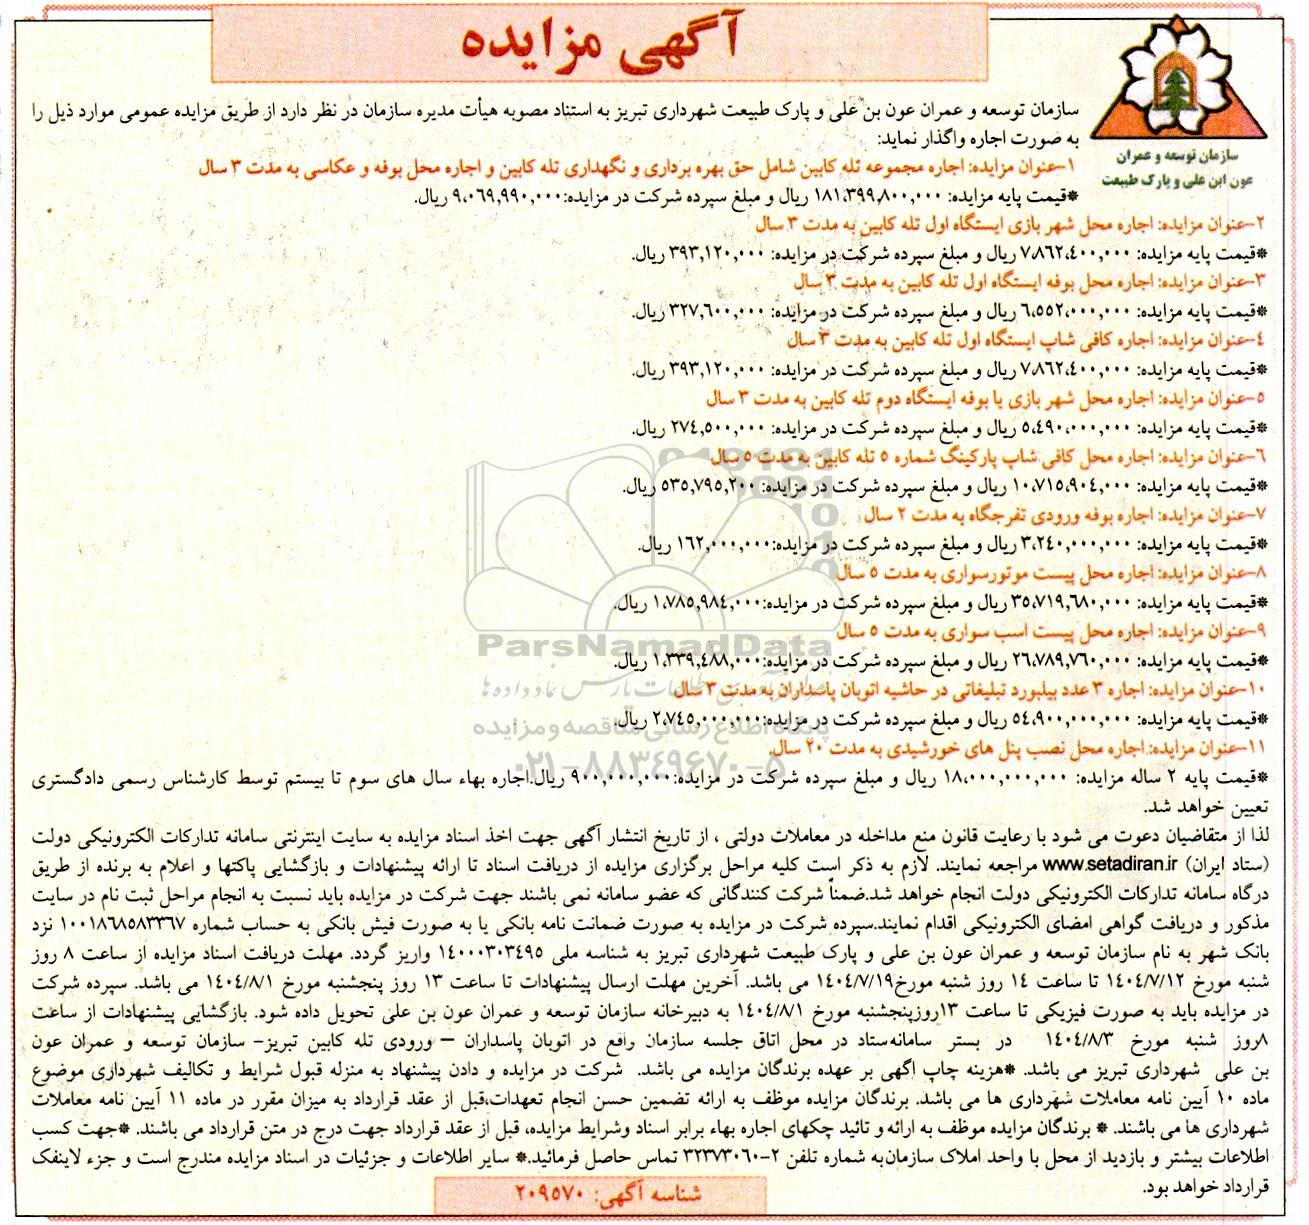 آگهی مزایده
سازمان توسعه و عمران
عون ابن علی و پارک طبیعت
سازمان توسعه و عمران عون بن علی و پارک طبیعت شهرداری تبریز به استناد مصوبه هیأت مدیره سازمان در نظر دارد از طریق مزایده عمومی موارد ذیل را
به صورت اجاره واگذار نماید:
۱-عنوان مزایده: اجاره مجموعه تله کابین شامل حق بهره برداری و نگهداری تله کابین و اجاره محل بوفه و عکاسی به مدت ۳ سال
*قیمت پایه مزایده: ۱۸۱،۳۹۹،۸۰۰,۰۰۰ ریال و مبلغ سپرده شرکت در مزایده:۹،۰۶۹,۹۹۰,۰۰۰ ریال.
۲-عنوان مزایده: اجاره محل شهر بازی ایستگاه اول تله کابین به مدت ۳ سال
*قیمت پایه مزایده: ۷،۸۶۲،٤۰۰,۰۰۰ ریال و مبلغ سپرده شرکت در مزایده: ۳۹۳,۱۲۰,۰۰۰ ریال.
۳-عنوان مزایده: اجاره محل بوفه ایستگاه اول تله کابین به مدت ۳ سال
*قیمت پایه مزایده: ٦،۵۵۲،۰۰۰,۰۰۰ ریال و مبلغ سپرده شرکت در مزایده: ۳۲۷,٦۰۰,۰۰۰ ریال.
٤-عنوان مزایده: اجاره کافی شاپ ایستگاه اول تله کابین به مدت ۳ سال
*قیمت پایه مزایده: ۷،۸۶۲،٤۰۰,۰۰۰ ریال و مبلغ سپرده شرکت در مزایده: ۳۹۳,۱۲۰,۰۰۰ ریال.
۵-عنوان مزایده: اجاره محل شهر بازی یا بوفه ایستگاه دوم تله کابین به مدت ۳ سال
*قیمت پایه مزایده: ۵،٤۹۰،۰۰۰,۰۰۰ ریال و مبلغ سپرده شرکت در مزایده: ۲۷٤,۵۰۰,۰۰۰ ریال.
٦-عنوان مزایده: اجاره محل کافی شاپ پارکینگ شماره ۵ تله کابین به مدت ۵ سال
*قیمت پایه مزایده: ۱۰،۷۱۵,۹۰٤,۰۰۰ ریال و مبلغ سپرده شرکت در مزایده: ۵۳۵,۷۹۵,۲۰۰ ریال.
۷-عنوان مزایده: اجاره بوفه ورودی تفرجگاه به مدت ۲ سال
*قیمت پایه مزایده: ۳،۲٤۰,۰۰۰,۰۰۰ ریال و مبلغ سپرده شرکت در مزایده:۱٦۲,۰۰۰,۰۰۰ ریال.
۸-عنوان مزایده: اجاره محل پیست موتورسواری به مدت ۵ سال
*قیمت پایه مزایده: ۳۵،۷۱۹,٦۸۰,۰۰۰ ریال و مبلغ سپرده شرکت در مزایده:۱،۷۸۵,۹۸٤,۰۰۰ ریال.
۹-عنوان مزایده: اجاره محل پیست اسب سواری به مدت ۵ سال
*قیمت پایه مزایده: ۲٦،۷۸۹,۷٦۰,۰۰۰ ریال و مبلغ سپرده شرکت در مزایده:۱،۳۳۹,٤۸۸,۰۰۰ ریال.
۱۰-عنوان مزایده: اجاره ۳ عدد بیلبورد تبلیغاتی در حاشیه اتوبان پاسداران به مدت ۳ سال
*قیمت پایه مزایده: ۵٤,۹۰۰,۰۰۰,۰۰۰ ریال و مبلغ سپرده شرکت در مزایده:۲،۷٤۵,۰۰۰,۰۰۰ ریال.
۱۱-عنوان مزایده: اجاره محل نصب پنل های خورشیدی به مدت ۲۰ سال.
*قیمت پایه ۲ ساله مزایده: ۱۸,۰۰۰,۰۰۰,۰۰۰ ریال و مبلغ سپرده شرکت در مزایده:۹۰۰,۰۰۰,۰۰۰ ریال.اجاره بهاء سال های سوم تا بیستم توسط کارشناس رسمی دادگستری
تعیین خواهد شد.
لذا از متقاضیان دعوت می شود با رعایت قانون منع مداخله در معاملات دولتی ، از تاریخ انتشار آگهی جهت اخذ اسناد مزایده به سایت اینترنتی سامانه تدارکات الکترونیکی دولت
(ستاد ایران) www.setadiran.ir مراجعه نمایند. لازم به ذکر است کلیه مراحل برگزاری مزایده از دریافت اسناد تا ارائه پیشنهادات و بازگشایی پاکتها و اعلام به برنده از طریق
درگاه سامانه تدارکات الکترونیکی دولت انجام خواهد شد.ضمناً شرکت کنندگانی که عضو سامانه نمی باشند جهت شرکت در مزایده باید نسبت به انجام مراحل ثبت نام در سایت
مذکور و دریافت گواهی امضای الکترونیکی اقدام نمایند.سپرده شرکت در مزایده به صورت ضمانت نامه بانکی یا به صورت فیش بانکی به حساب شماره ۱۰۰۱۸٦۸۵۸۳۳٦۷ نزد
بانک شهر به نام سازمان توسعه و عمران عون بن علی و پارک طبیعت شهرداری تبریز به شناسه ملی ۱٤۰۰۰۳۰۳٤۹۵ واریز گردد. مهلت دریافت اسناد مزایده از ساعت ۸ روز
شنبه مورخ ۱٤۰٤/۷/۱۲ تا ساعت ۱٤ روز شنبه مورخ۱٤۰٤/۷/۱۹ می باشد. آخرین مهلت ارسال پیشنهادات تا ساعت ۱۳ روز پنجشنبه مورخ ۱٤۰٤/۸/۱ می باشد. سپرده شرکت
در مزایده باید به صورت فیزیکی تا ساعت ۱۳روزپنجشنبه مورخ ۱٤۰٤/۸/۱ به دبیرخانه سازمان توسعه و عمران عون بن علی تحویل داده شود. بازگشایی پیشنهادات از ساعت
۸روز شنبه مورخ ۱٤۰٤/۸/۳ در بستر سامانه‌ستاد در محل اتاق جلسه سازمان رافع در اتوبان پاسداران – ورودی تله کابین تبریز- سازمان توسعه و عمران عون
بن علی شهرداری تبریز می باشد. *هزینه چاپ اگهی بر عهده برندگان مزایده می باشد. شرکت در مزایده و دادن پیشنهاد به منزله قبول شرایط و تکالیف شهرداری موضوع
ماده ۱۰ آیین نامه معاملات شهرداری ها می باشد. برندگان مزایده موظف به ارائه تضمین حسن انجام تعهدات،قبل از عقد قرارداد به میزان مقرر در ماده ۱۱ آیین نامه معاملات
شهرداری ها می باشند. * برندگان مزایده موظف به ارائه و تائید چکهای اجاره بهاء برابر اسناد وشرایط مزایده، قبل از عقد قرارداد جهت درج در متن قرارداد می باشند. *جهت کسب
اطلاعات بیشتر و بازدید از محل با واحد املاک سازمان‌به شماره تلفن ۲-۳۲۳۷۳۰٦۰ تماس حاصل فرمائید.* سایر اطلاعات و جزئیات در اسناد مزایده مندرج است و جزء لاینفک
قرارداد خواهد بود.
شناسه آگهی: ۲۰۹۵۷۰
ParsNamadData
پایگاه اطلاع رسانی مناقصه و مزایده
۰۲۱-۸۸۳۴۹۶۷۰-۵